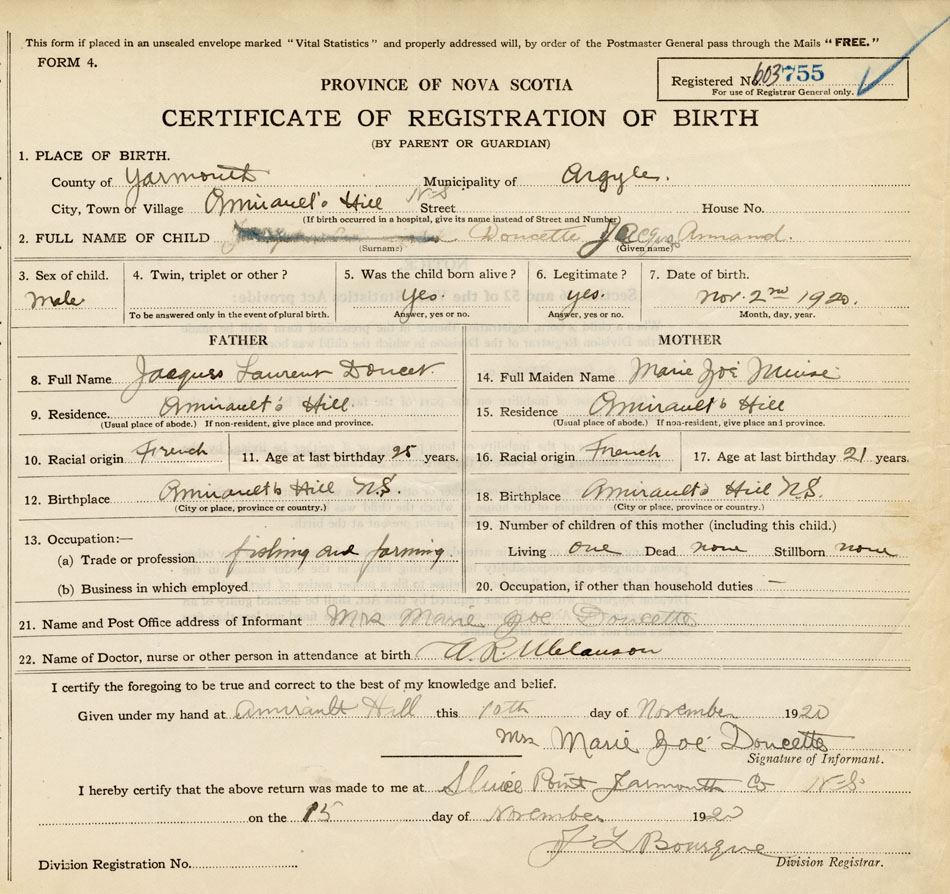 This form if placed in an unsealed envelope marked "Vital Statistics" and properly addressed will, by order of the Postmaster General pass through the Mails "FREE."
FORM 4.
Registered No. 603755
For use of Registrar General only.
PROVINCE OF NOVA SCOTIA
CERTIFICATE OF REGISTRATION OF BIRTH
(BY PARENT OR GUARDIAN)
1. PLACE OF BIRTH.
County of Yarmouth Municipality of Argyle.
City, Town or Village Amirault's Hill N-S Street House No.
(If birth occurred in a hospital, give its name instead of Street and Number)
2. FULL NAME OF CHILD Doucette Armand.
(Surname) (Given name)
3. Sex of child. 4. Twin, triplet or other? 5. Was the child born alive? 6. Legitimate? 7. Date of birth.
Male yes. yes. Nov. 2nd 1920.
To be answered only in the event of plural birth. Answer, yes or no. Answer, yes or no. Month, day, year.
FATHER MOTHER
8. Full Name Jacques Laurent Doucet 14. Full Maiden Name Marie Zoé Muise
9. Residence. Amirault's Hill. 15. Residence Amirault's Hill
(Usual place of abode.) If non-resident, give place and province. (Usual place of abode.) If non-resident, give place and province.
10. Racial origin French 11. Age at last birthday 25 years. 16. Racial origin French 17. Age at last birthday 21 years.
12. Birthplace Amirault's Hill N.S. 18. Birthplace Amirault's Hill N.S.
(City or place, province or country.) (City or place, province or country.)
13. Occupation:— 19. Number of children of this mother (including this child.)
(a) Trade or profession fishing and farming. Living one Dead none Stillborn none
(b) Business in which employed 20. Occupation, if other than household duties —
21. Name and Post Office address of Informant Mrs Marie Zoe Doucette
22. Name of Doctor, nurse or other person in attendance at birth. A. R. Melanson
I certify the foregoing to be true and correct to the best of my knowledge and belief.
Given under my hand at Amirault Hill this 10th day of November 1920
Mrs Marie Zoé Doucette
Signature of Informant.
I hereby certify that the above return was made to me at Sluice Point Yarmouth Co N-S
on the 15 day of November 1920
J L Bourque
Division Registration No. Division Registrar.